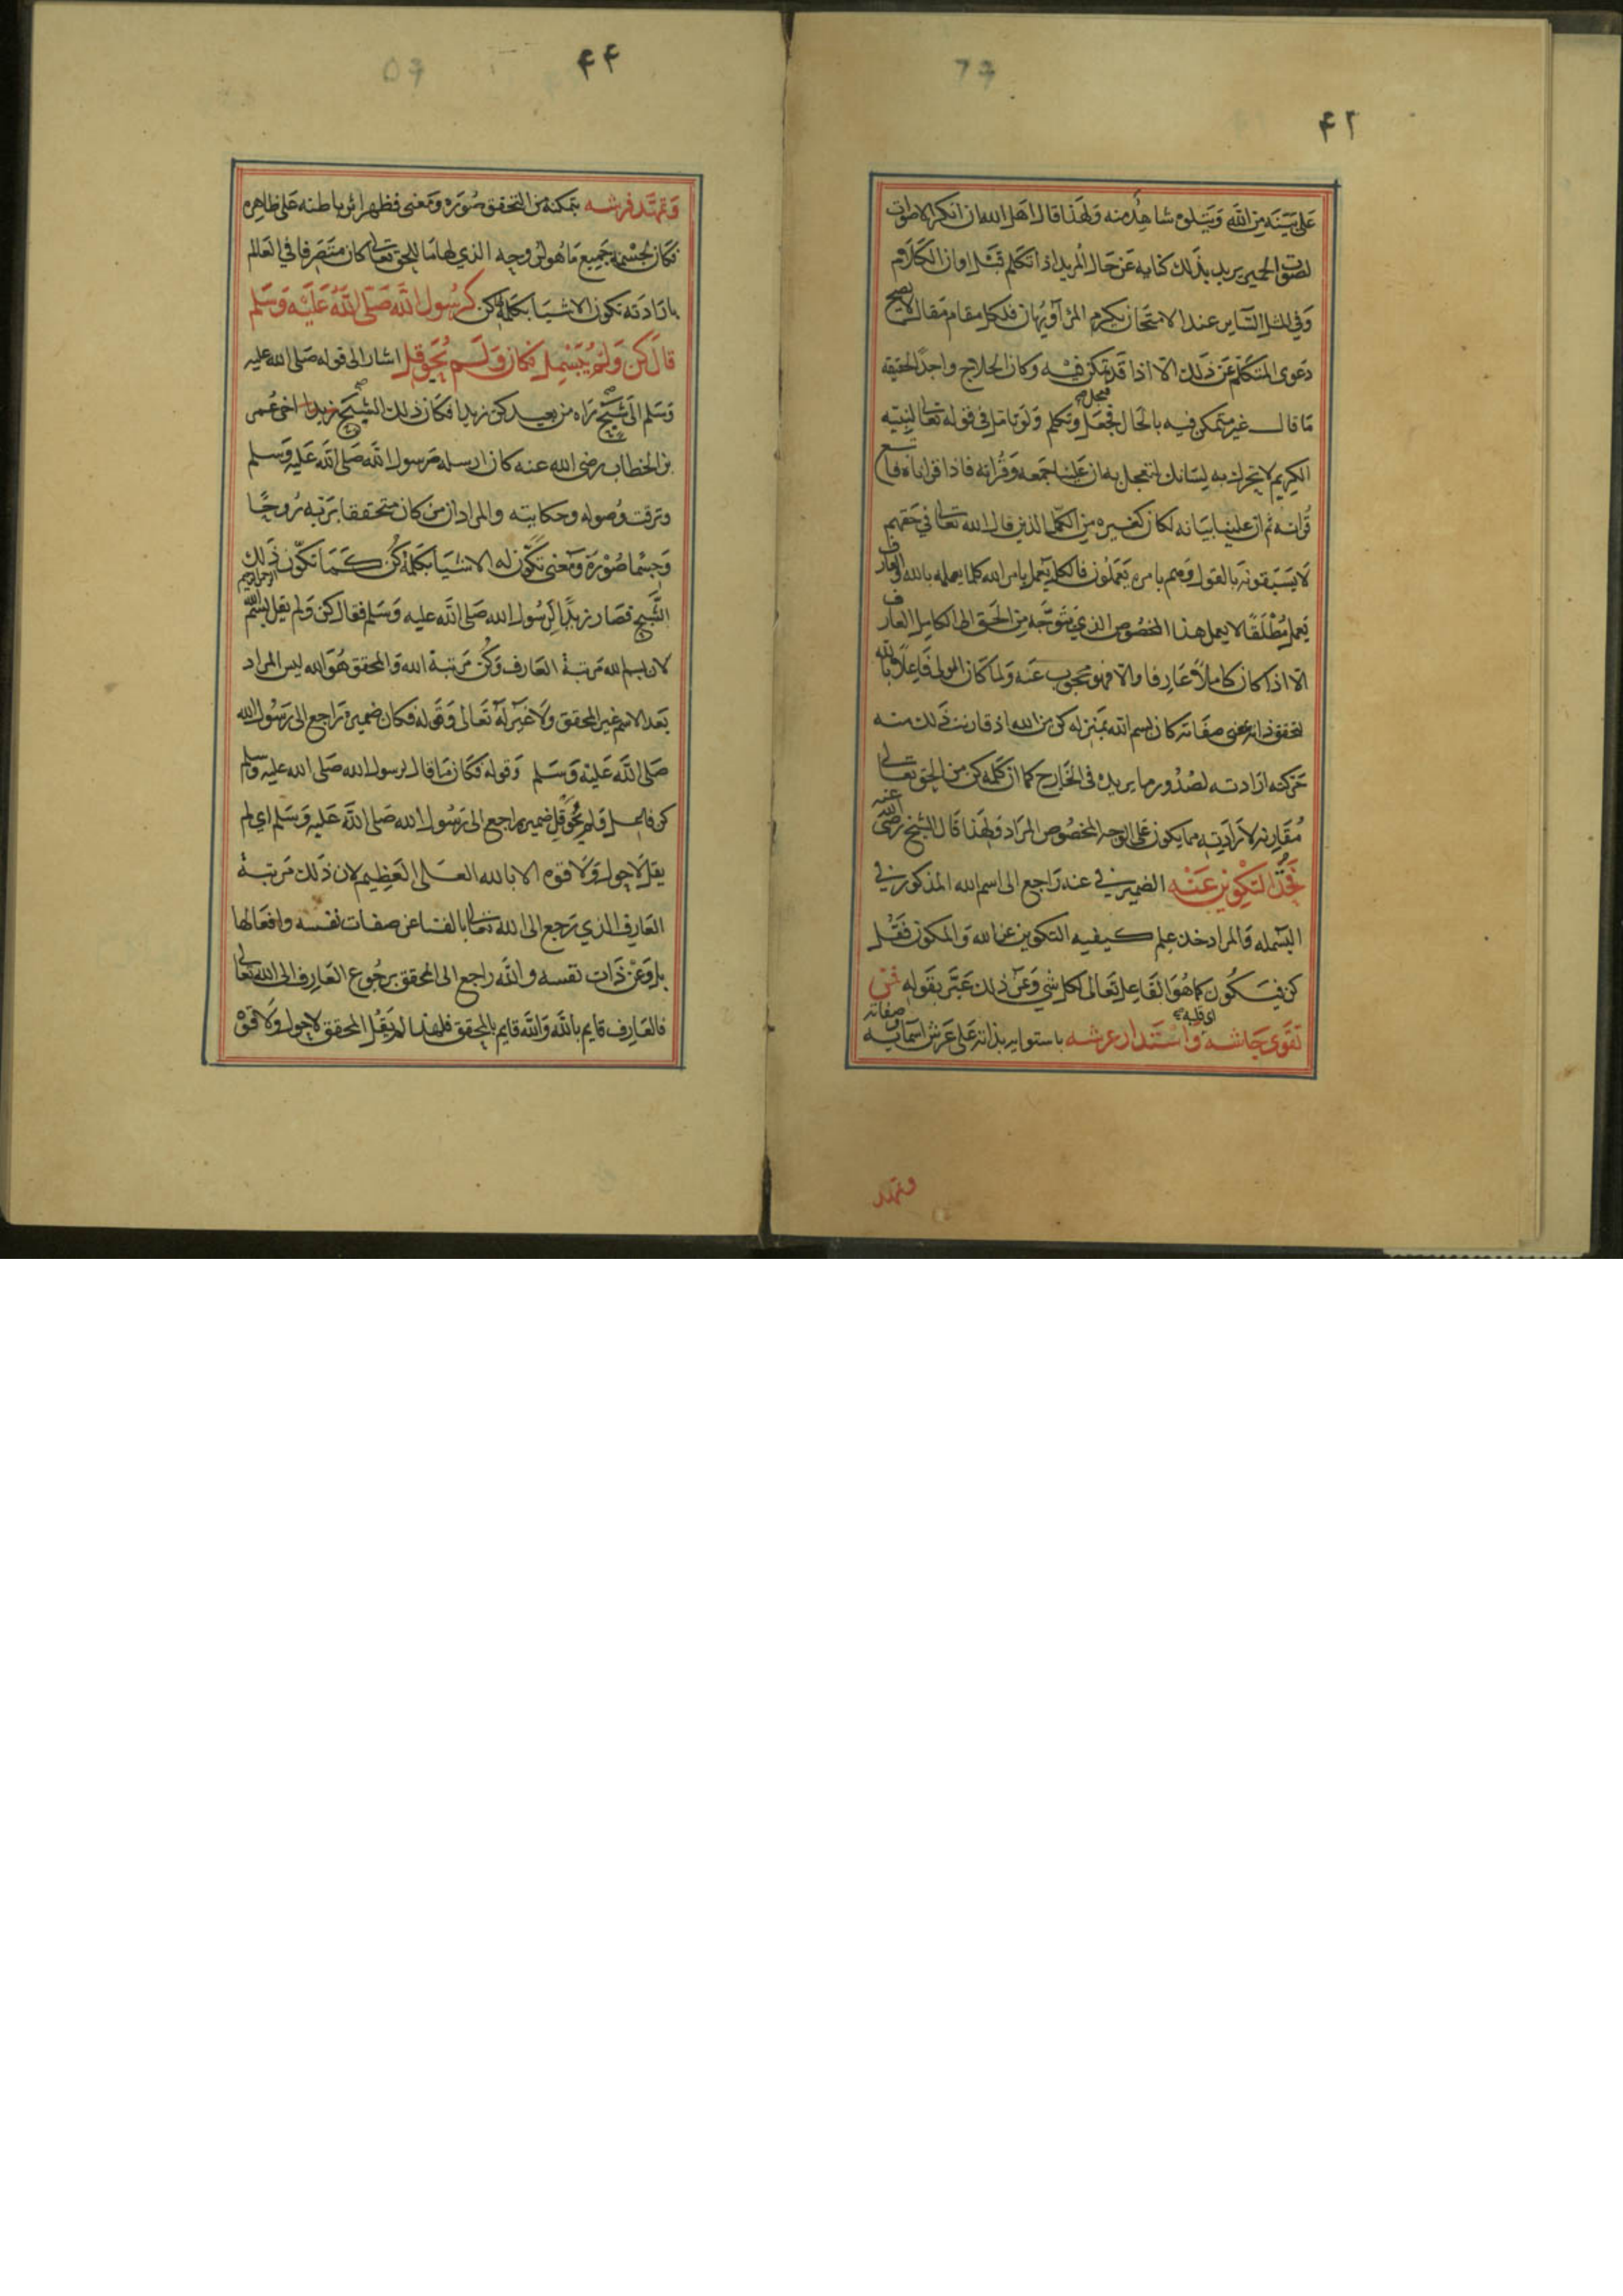 ۴۲
على بينه من الله ويتلوه شاهد منه ولهذا قال اهل الله ان انكر الاصوات
لصوت الحمير يريد بذلك كنايه عن حال المريد اذا تكلم قبل اوان الكلام
وفي المثل الساير عند الامتحان يكرم المرؤ او يهان فلكل مقام مقال لا يصح
دعوى المتكلم عن ذلك الا اذا قد تمكن فيه وكان الحلاج واجدا لحقيقه
ما قال غير متمكن فيه بالحال فعجل وتكلم ولو تامل في قوله تعالى لنبيه
الكريم لا تحرك به لسانك لتعجل به ان علينا جمعه وقرانه فاذا قراناه فاتبع
قرانه ثم ان علينا بيانه لكان كغيره من الكمل الذين قال الله تعالى في حقهم
لا يسبقونه بالقول وهم بامره يعملون فالكل يعمل بامر الله كلما يعمله بالله والعارف
يعمل مطلقا لا يعمل هذا المخصوص الذي يتوجه من الحق الى الكامل العارف
الا اذا كان كاملا وعارفا والا فهو محجوب عنه ولما كان الولى فاعلا بالله
لتحقق ذاته بمعنى صفاته كان بسم الله بمنزله كن من الله اذ قارنت ذلك منه
حركة ارادته لصدور ما يريده في الخارج كما ان كلمه كن من الحق تعالى
مقارنه لارادته مما يكون على الوجه المخصوص المراد ولهذا قال الشيخ رضي الله عنه
فخذ التكوين عنه الضمير في عنه راجع الى اسم الله المذكور في
البسمله والمراد خذ علم كيفيه التكوين عن الله والمكون فقل
كن فيكون كما هو الفاعل تعالى لكل شي وعن ذلك عبر بقوله فمن
اى قلبه
تقوى جاشه واستدار عرشه باستوايه بذاته على عرش اسمايه وصفاته
وتمهد
۴۴
وتمهد فرشه بتمكنه من التحقق صورة ومعنى فظهر اثر باطنه على ظاهره
فكان بجسمه جميع ما هو لروحه الذي لها ما للحق تعالى كان متصرفا في العالم
بارادته تكون الاشيا بكلمة كن كرسول الله صلى الله عليه وسلم
قال كن ولم يبسمل فكان ولم يحوقل اشار الى قوله صلى الله عليه
وسلم الى شبح راه من بعيد كن زيدا فكان ذلك الشبح زيدا اخى عمر
بن الخطاب رضي الله عنه كان ارسله رسول الله صلى الله عليه وسلم
وترقت وصوله وحكايته والمراد ان من كان متحققا بربه روحا
وجسما صورة ومعنى تكون له الاشيا بكلمة كن كما تكون ذلك
الشبح فصار زيدا لرسول الله صلى الله عليه وسلم فقال كن ولم يقل بسم الله الرحمن الرحيم
لان بسم الله مرتبة العارف وكن مرتبة الله والمحقق هو الله ليس المراد
بعد الاسم غير المحقق ولا غير له تعالى وقوله فكان ضميره راجع الى رسول الله
صلى الله عليه وسلم وقوله فكان ما قال رسول الله صلى الله عليه وسلم
كن ولم يحوقل ضميره راجع الى رسول الله صلى الله عليه وسلم اى لم
يقل لا حول ولا قوه الا بالله العلى العظيم لان ذلك مرتبة
العارف الذي رجع الى الله تعالى بالفنا عن صفات نفسه وافعالها
بل وعن ذات نفسه والله راجع الى المحقق برجوع العارف الى الله تعالى
فالعارف قايم بالله والله قايم بالمحقق فلهذا لم يقل المحقق لا حول ولا قوة